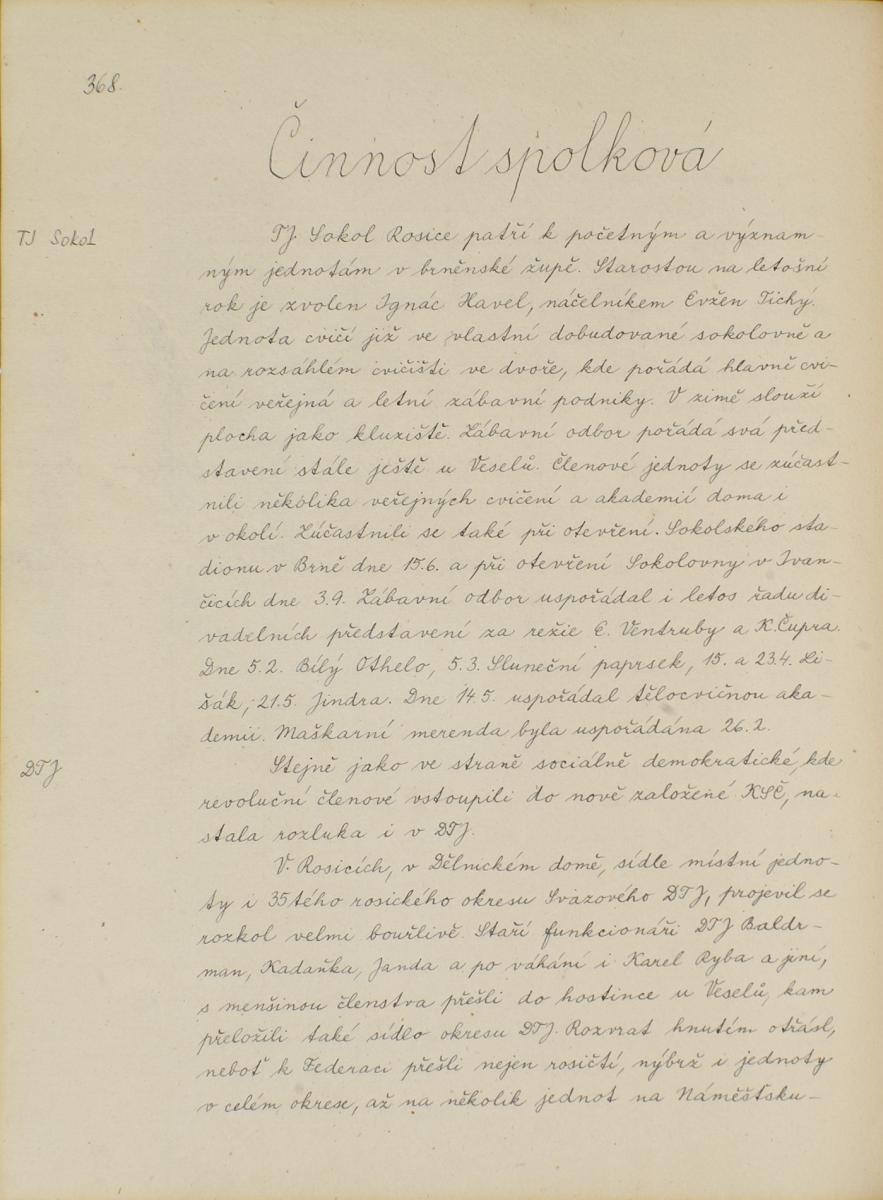 368.
Činnost spolková
TJ Sokol
TJ. Sokol Rosice patří k početným a význam-
ným jednotám v brněnské župě. Starostou na letošní
rok je zvolen Ignác Havel, náčelníkem Evžen Tichý.
Jednota cvičí již ve vlastní dobudované sokolovně a
na rozsáhlém cvičišti ve dvoře, kde pořádá hlavně cvi-
čení veřejná a letní zábavní podniky. V zimě slouží
plocha jako kluziště. Zábavní odbor pořádá svá před-
stavení stále ještě u Veselů. Členové jednoty se zúčast-
nili několika veřejných cvičení a akademií doma i
v okolí. Zúčastnili se také při otevření. Sokolského sta-
dionu v Brně dne 15.6. a při otevření Sokolovny v Ivan-
čicích dne 3.9. Zábavní odbor uspořádal i letos řadu di-
vadelních představení za režie E. Ventruby a K. Čupra.
Dne 5.2. Bílý Othelo, 5.3. Sluneční paprsek, 15. a 23.4. Li-
šák, 21.5. Jindra. Dne 14.5. uspořádal tělocvičnou aka-
demii. Maškarní merenda byla uspořádána 26.2.
DTJ
Stejně jako ve straně sociálně demokratické, kde
revoluční členové vstoupili do nově založené KSČ, na-
stala rozluka i v DTJ.
V. Rosicích, v Dělnickém domě, sídle místní jedno-
ty i 35tého rosického okresu Svazového DTJ, projevil se
rozkol velmi bouřlivě. Staří funkcionáři DTJ Baldr-
man, Kadaňka, Janda a po váhání i Karel Ryba a jiní,
s menšinou členstva přešli do hostince u Veselů, kam
přeložili také sídlo okresu DTJ. Rozvrat hnutím otřásl,
neboť k Federaci přešli nejen rosičtí, nýbrž i jednoty
v celém okrese, až na několik jednot na Náměšťsku-